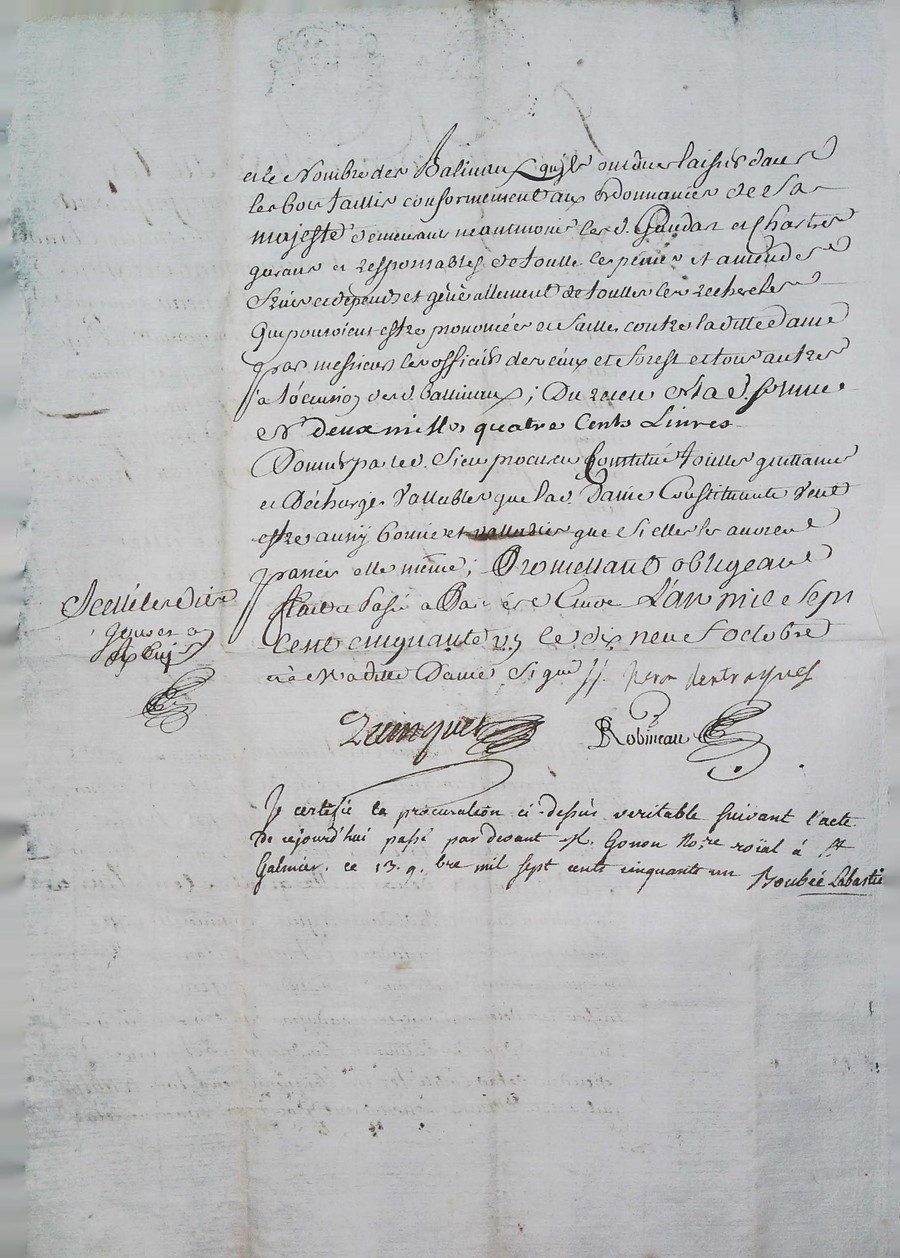 et le Nombre des Balivaux quils ont deu laisser dans
les bois taillis conformement aux ordonnances de Sa
majesté demeurant neantmoins les d. Gaudar et Chartre
garans et responsables de toutte les peines et amendes
frais et depends et généallement de touttes les recherches
qui pouroient estre prononcées et faittes contre laditte dame
par messieurs les officiers des eaux et forest et tous autres
a l'ocasion des d. ballivaux; Du receu de lad. somme
de deux mille quatre cents Livres
Donner par led. Sieur procureur Constitué touttes quittances
et Décharges Vallables que lad. Dame Constituante veut
estre aussy bonnes et vallables que si elle les avoient
passées elle même; Promettant obligeant
fait et Passé a Paris en l'an mil sept
Cent cinquante un le dix neuf octobre
et a laditte Dame Signé
Scellé ledit
jour
Quinquet
Robineau
Je certifie la procuration ci-dessus veritable suivant l'acte
De cejourd'hui passé par devant M. Gonon No.re roïal à St
Galmier. ce 13. 9.bre mil sept cents cinquante un Boubée Labastie